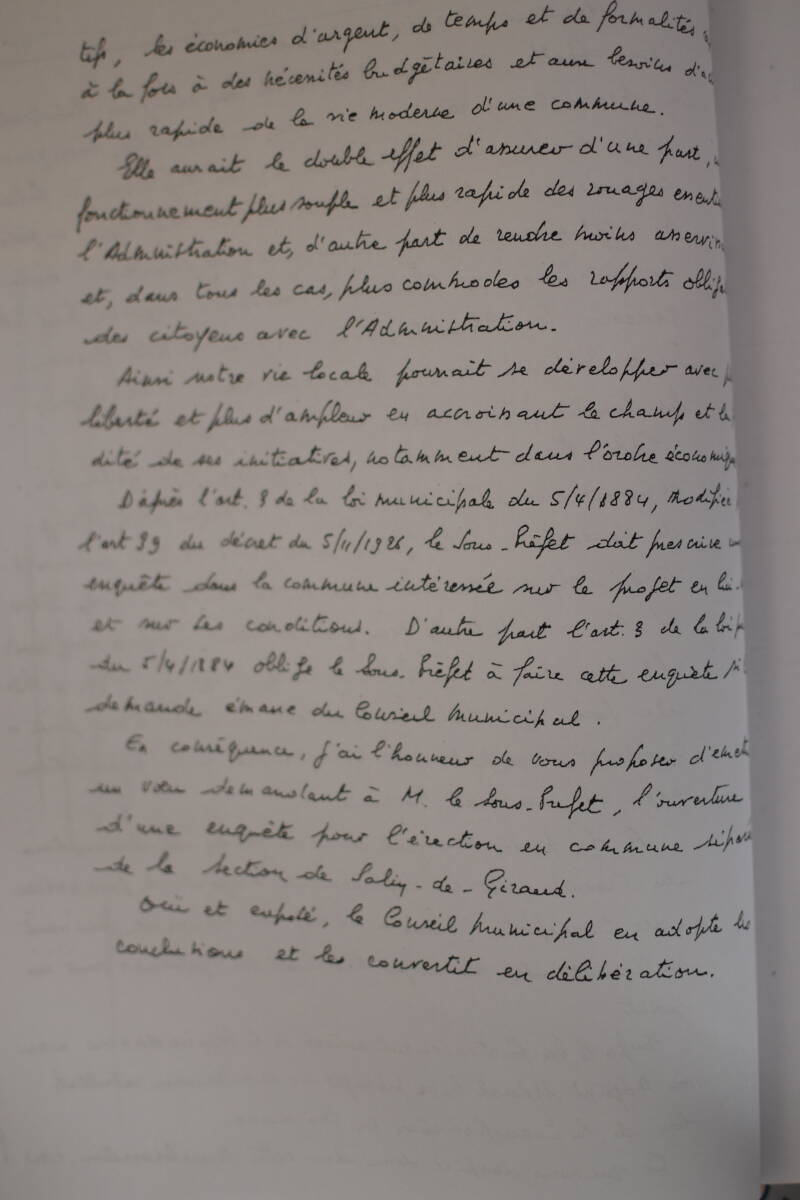 tifs, les économies d'argent, de temps et de formalités
à la fois à des nécessités budgétaires et aux besoins d'a
plus rapide de la vie moderne d'une commune.
Elle aurait le double effet d'assurer d'une part,
fonctionnement plus souple et plus rapide des rouages essenti
l'Administration et, d'autre part de rendre moins asservi
et, dans tous les cas, plus commodes les rapports oblig
des citoyens avec l'Administration.
Ainsi notre vie locale pourrait se développer avec p
liberté et plus d'ampleur en accroissant le champ et la
dité de ses initiatives, notamment dans l'ordre économiq
D'après l'art. 3 de la loi municipale du 5/4/1884, modifiée
l'art 39 du décret du 5/11/1926, le Sous-Préfet doit prescrire un
enquête dans la commune intéressée sur le projet en lui-
et sur ses conditions. D'autre part l'art. 3 de la loi
du 5/4/1884 oblige le Sous-Préfet à faire cette enquête si
demande émane du Conseil Municipal.
En conséquence, j'ai l'honneur de vous proposer d'émet
un vœu demandant à M. le Sous-Préfet, l'ouverture
d'une enquête pour l'érection en commune sépar
de la section de Salin-de-Giraud.
Ouï cet exposé, le Conseil Municipal en adopte les
conclusions et les convertit en délibération.